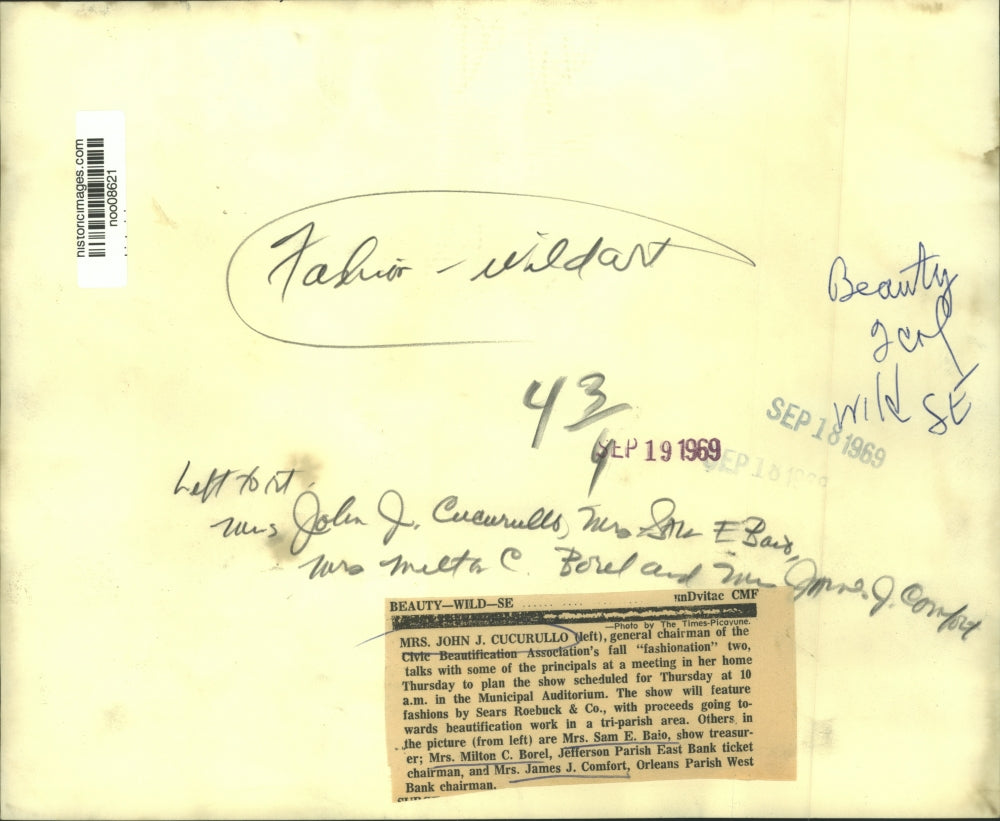 historicimages.com
noo08621
Fashion - wildart
Beauty
2 col
Wild SE
43
4
SEP 19 1969
SEP 18 1969
SEP 18 1969
Left to rt.
Mrs John J. Cucurullo, Mrs Sam E Baio,
Mrs Milton C. Borel and Mrs James J. Comfort
BEAUTY—WILD—SE ...... .... . ... . unDvitae CMF
—Photo by The Times-Picayune.
MRS. JOHN J. CUCURULLO (left), general chairman of the
Civic Beautification Association's fall "fashionation" two,
talks with some of the principals at a meeting in her home
Thursday to plan the show scheduled for Thursday at 10
a.m. in the Municipal Auditorium. The show will feature
fashions by Sears Roebuck & Co., with proceeds going to-
wards beautification work in a tri-parish area. Others in
the picture (from left) are Mrs. Sam E. Baio, show treasur-
er; Mrs. Milton C. Borel, Jefferson Parish East Bank ticket
chairman, and Mrs. James J. Comfort, Orleans Parish West
Bank chairman.